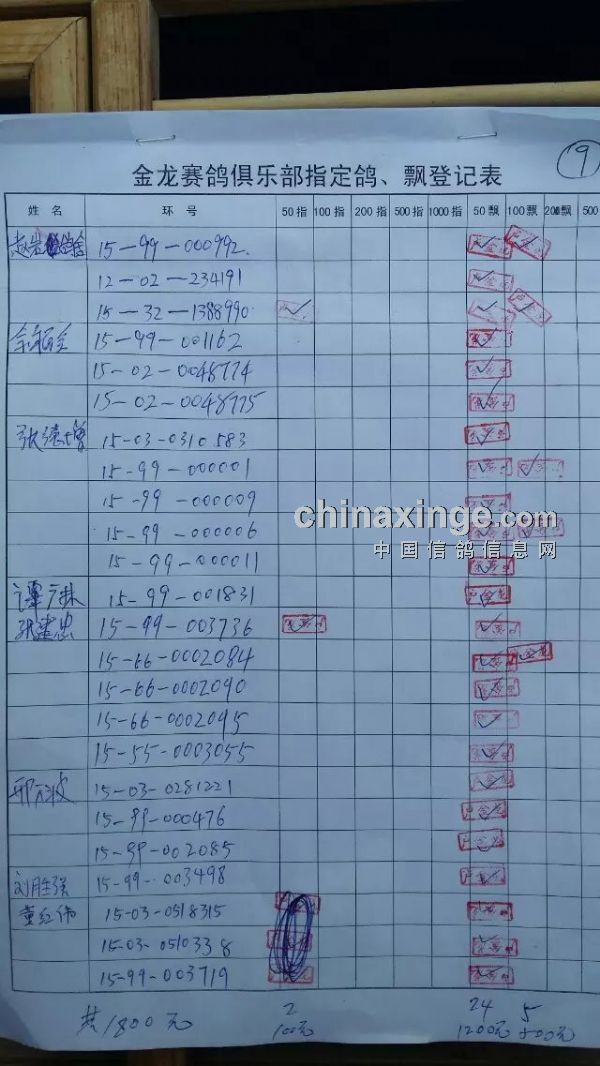 9
金龙赛鸽俱乐部指定鸽、飘登记表
姓 名 环 号 50指 100指 200指 500指 1000指 50飘 100飘 200飘 500
15-99-000992
12-02-234191
15-32-1388990
15-99-001162
15-02-0048774
15-02-0048775
张德增 15-03-0310583
15-99-000001
15-99-000009
chinaxinge.com
15-99-000006
中国信鸽信息网
15-99-000011
15-99-001831
张建忠 15-99-003736
15-66-0002084
15-66-0002090
15-66-0002095
15-55-0003055
15-03-0281221
15-99-000476
15-99-002085
刘胜强 15-99-003498
董红伟 15-03-0518315
15-03-0510338
15-99-003719
共1800元 2 24 5
100元 1200元 500元